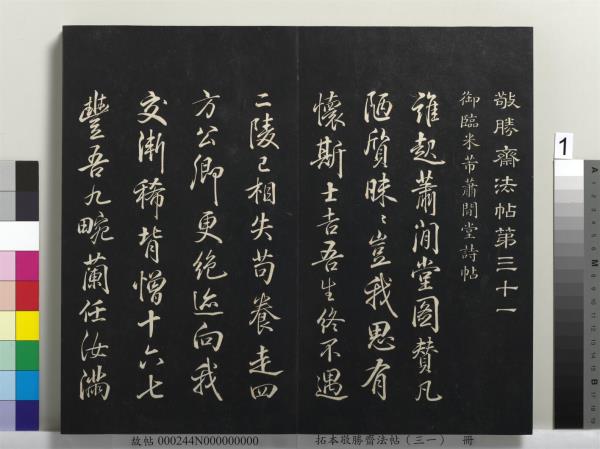 敬勝齋法帖第三十一
御臨米芾蕭閒堂詩帖
誰起蕭閒堂圖贊凡
陋質昧〻豈我思有
懷斯士吉吾生終不遇
二陵已相失苟養走四
方公卿更絕迹向我
交漸稀背憎十六七
豐吾九畹蘭任汝滿
故帖 000244N000000000
拓本敬勝齋法帖(三一) 冊
1